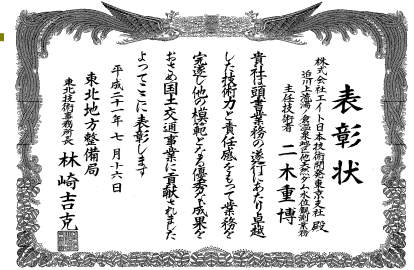 表彰状
株式会社エイト日本技術開発東京支社 殿
迫川上流湯ノ倉温泉地区他天然ダム水位観測業務
主任技術者 二木重博
貴社は頭書業務の遂行にあたり卓越
した技術力と責任感をもって業務を
完遂し他の模範となる優秀な成果を
おさめ国土交通事業に貢献されました
よってここに表彰します
平成二十一年七月十六日
東北地方整備局
東北技術事務所長 林崎吉克